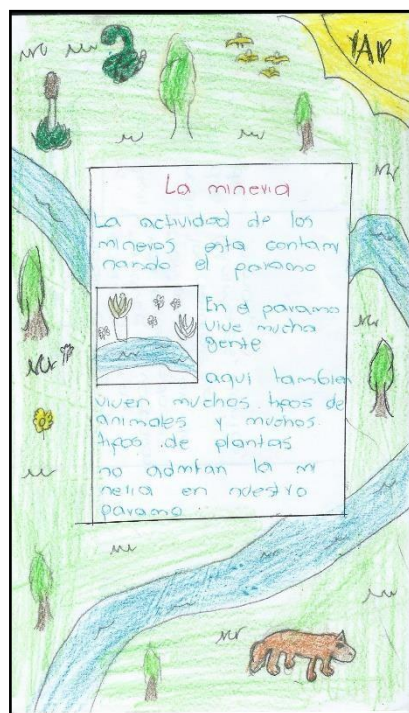 YAIR
La mineria
La actividad de los
mineros esta contami
nando el paramo
En el paramo
vive mucha
gente
aqui tambien
viven muchos tipos de
animales y muchos
tipos de plantas
no admitan la mi
neria en nuestro
paramo